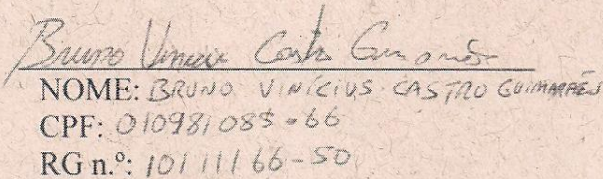 Bruno Vinicius Castro Guimarães
NOME: BRUNO VINÍCIUS CASTRO GUIMARÃES
CPF: 010981085-66
RG n.º: 10111166-50